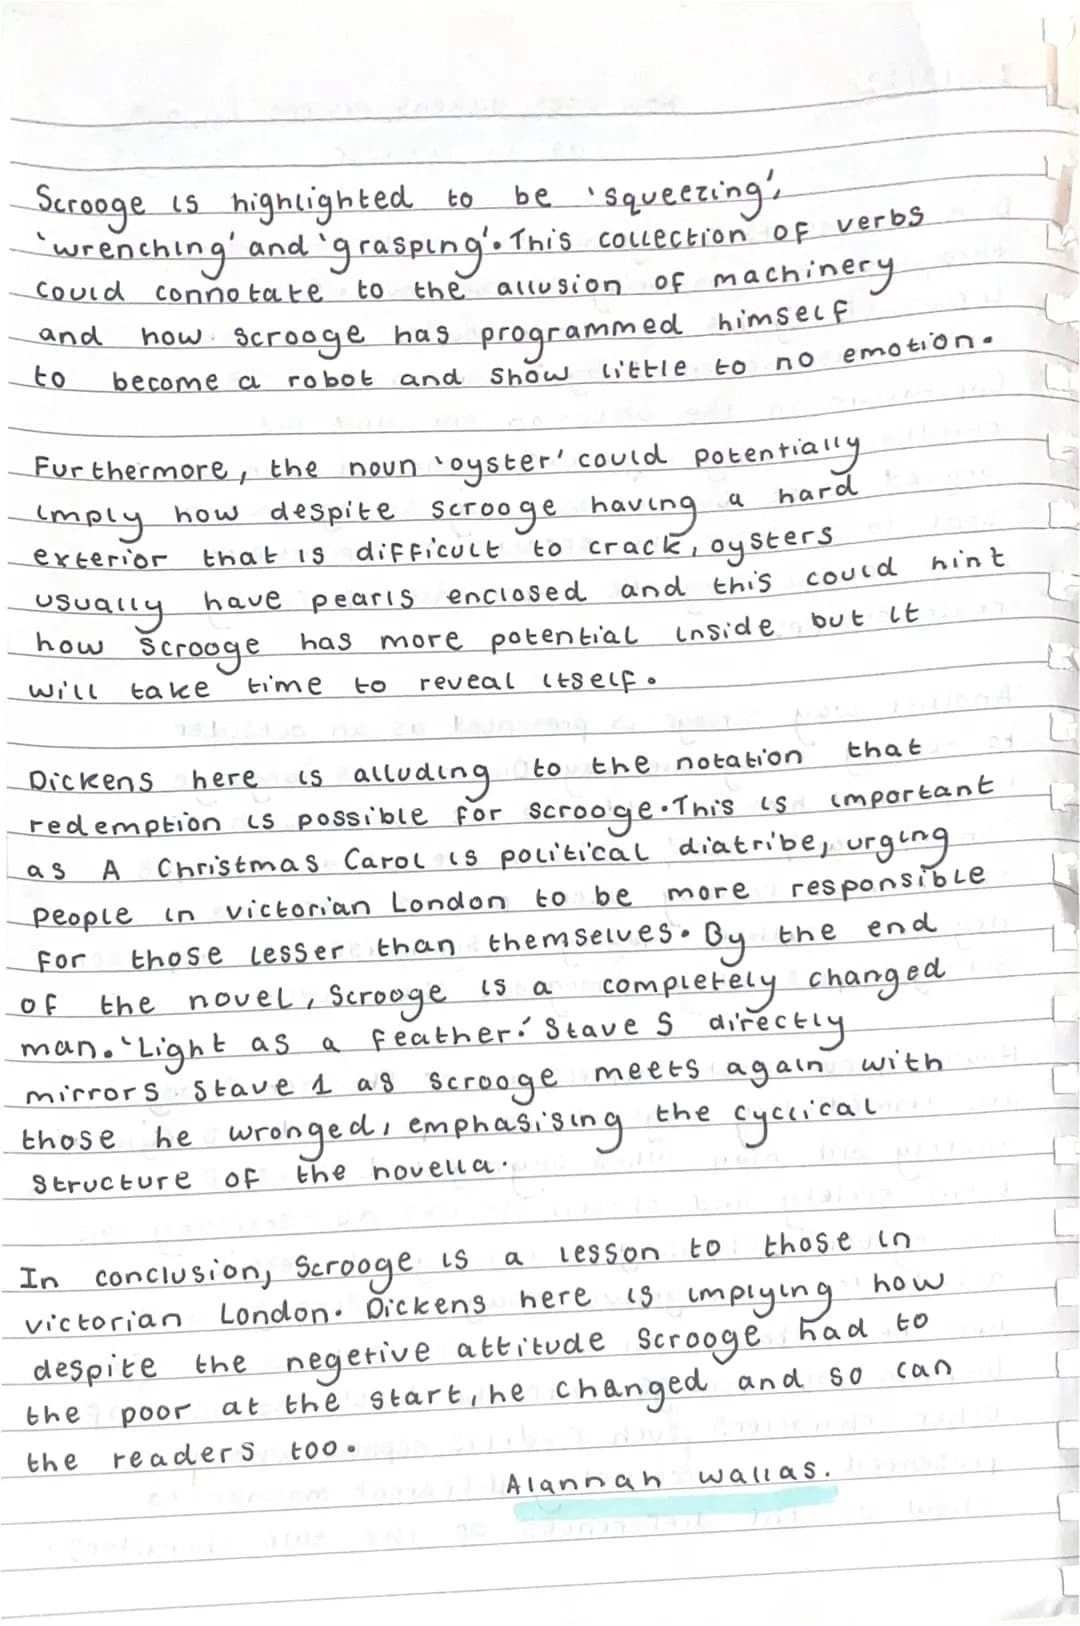 Scrooge is highlighted to be 'squeezing',
'wrenching' and 'grasping'. This collection of verbs
could connotate to the allusion of machinery
and how scrooge has programmed himself
to become a robot and show little to no emotion.
Furthermore, the noun 'oyster' could potentially
imply how despite scrooge having a hard
exterior that is difficult to crack, oysters
usually have pearls enclosed and this could hint
how scrooge has more potential inside but it
will take time to reveal itself.
Dickens here is alluding to the notation that
redemption is possible for scrooge. This is important
as A Christmas Carol is political diatribe, urging
people in victorian London to be more responsible
for those lesser than themselves. By the end
of the novel, Scrooge is a completely changed
man. 'Light as a feather.' Stave 5 directly
mirrors Stave 1 as scrooge meets again with
those he wronged, emphasising the cyclical
structure of the novella.
In conclusion, Scrooge is a lesson to those in
victorian London. Dickens here is implying how
despite the negetive attitude scrooge had to
the poor at the start, he changed and so can
the readers too.
Alannah wallas.